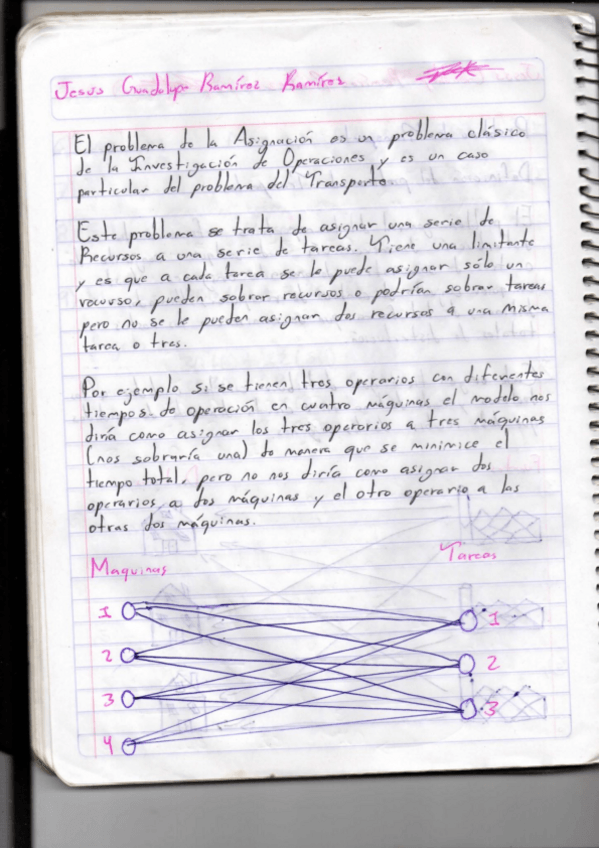 Jesus Guadalupe Ramírez Ramírez
El problema de la Asignación es un problema clásico
de la Investigación de Operaciones y es un caso
particular del problema del Transporte.
Este problema se trata de asignar una serie de
Recursos a una serie de tareas. Tiene una limitante
y es que a cada tarea se le puede asignar sólo un
recurso, pueden sobrar recursos o podrían sobrar tareas
pero no se le pueden asignar dos recursos a una misma
tarea o tres.
Por ejemplo si se tienen tres operarios con diferentes
tiempos de operación en cuatro máquinas el modelo nos
diría como asignar los tres operarios a tres máquinas
(nos sobraría una) de manera que se minimice el
tiempo total, pero no nos diría como asignar dos
operarios a dos máquinas y el otro operario a las
otras dos máquinas.
Maquinas Tareas
1 1
2 2
3 3
4